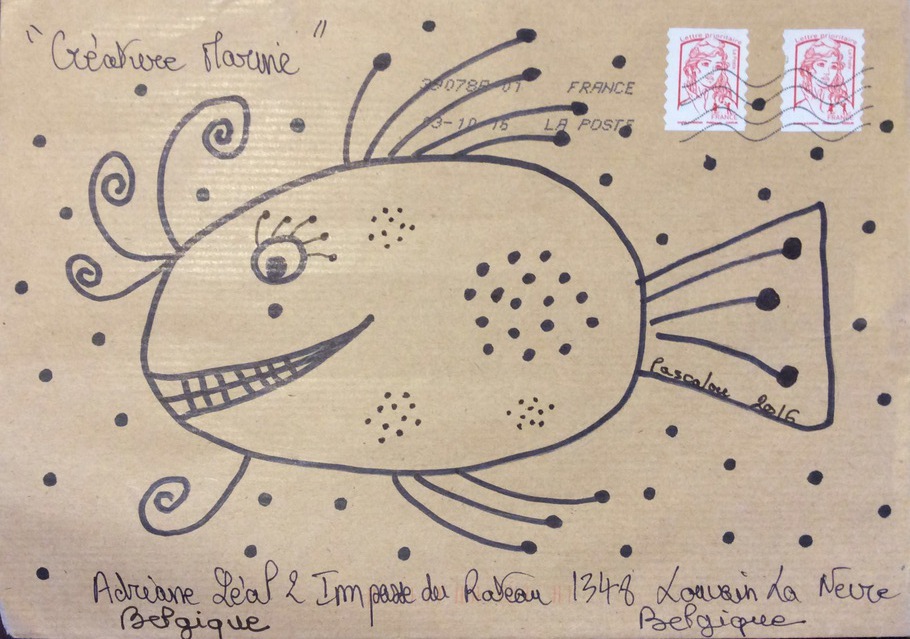 "Créature Marine"
Lettre prioritaire
Lettre prioritaire
FRANCE
FRANCE
39078A 01 FRANCE
03-10-16 LA POSTE
Pascalou 2016
Adriane Léal 2 Impasse du Rateau 1348 Louvain La Neuve
Belgique Belgique